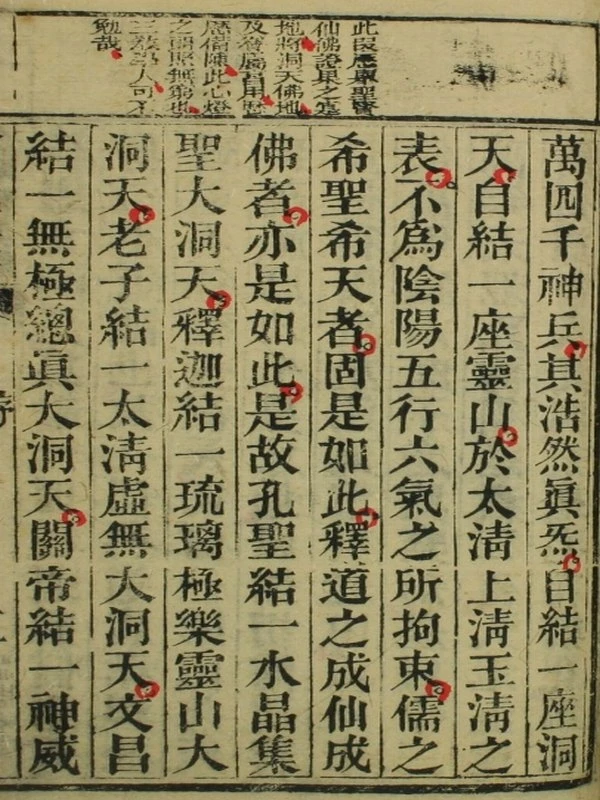 此段歷舉聖賢
仙佛證果之
地將洞天佛地
及
歷備陳此心燈
之照無窮也
三教學人可不
勉哉
萬四千神兵其浩然眞炁自結一座洞
天自結一座靈山於太清上清玉清之
表不爲陰陽五行六氣之所拘束儒之
希聖希天者固是如此釋道之成仙成
佛者亦是如此是故孔聖結一水晶集
聖大洞天釋迦結一琉璃極樂靈山大
洞天老子結一太清虛無大洞天文昌
結一無極總眞大洞天關帝結一神威